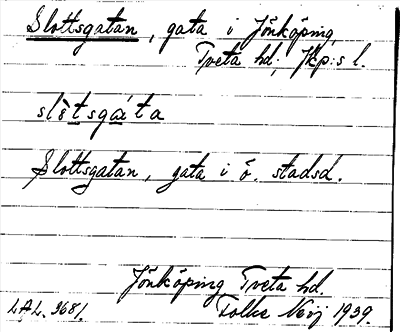 Slottsgatan, gata i Jönköping,
Tveta hd; Jkp:s l.
slòtsgàta
Slottsgatan, gata i ö. stadsd.
Jönköping Tveta hd.
L.A.L. 3681. Folke 1939.